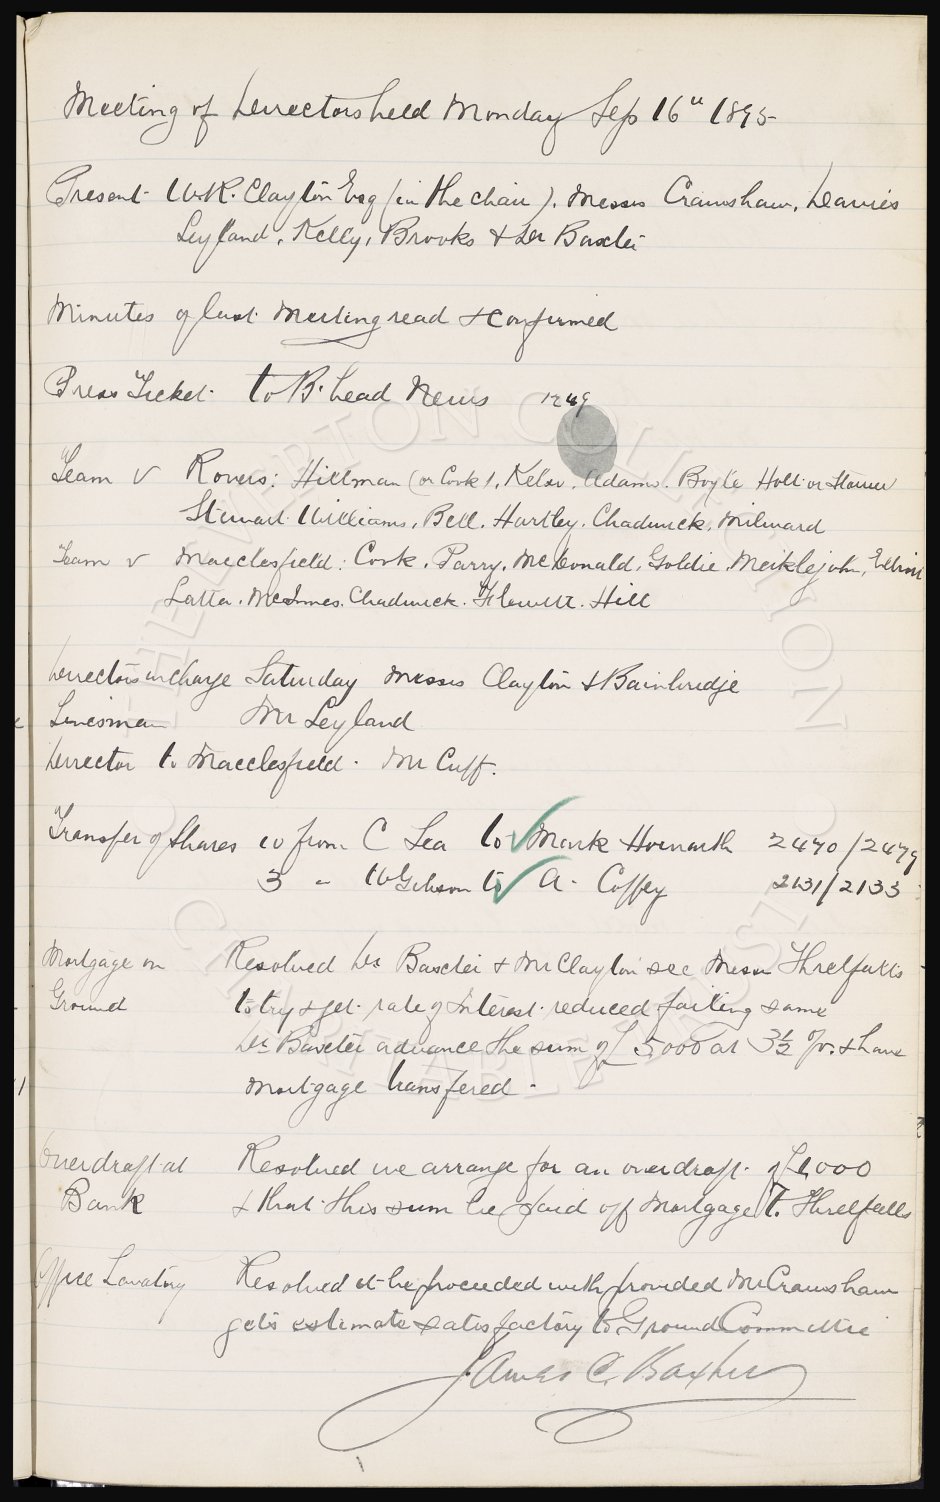 Meeting of Directors held Monday Sep 16th 1895
Present W.R. Clayton Esq (in the chair). Messrs Crawshaw, Davies
Leyland, Kelly, Brooks & Dr Baxter
Minutes of last Meeting read & confirmed
Press Ticket to B.head News 1249
Team v Rovers: Hillman (or Cook), Kelso, Adams, Boyle Holt or Storrier
Stewart Williams, Bell, Hartley, Chadwick, Milward
Team v Macclesfield: Cook, Parry, McDonald, Goldie, Meiklejohn, Elliott
Latta, McInnes, Chadwick, Flewitt, Hill
Directors in charge Saturday Messrs Clayton & Bainbridge
Linesman Mr Leyland
Director to Macclesfield Mr Cuff.
Transfer of Shares 10 from C Lea to Mark Howarth 2470/2479
3 " W Gibson to A. Coffey 2131/2133
Mortgage on Resolved Dr Baxter & Mr Clayton see Messrs Threlfalls
Ground to try & get rate of Interest reduced failing same
Dr Baxter advance the sum of £5,000 at 3½ % & have
Mortgage transfered -
Overdraft at Resolved we arrange for an overdraft of £1,000
Bank & that this sum be paid off Mortgage T. Threlfalls
Office Lavatory Resolved it be proceeded with provided Mr Crawshaw
gets estimate satisfactory to Ground Committee
James C. Baxter
EVERTON COLLECTION CHARITABLE TRUST